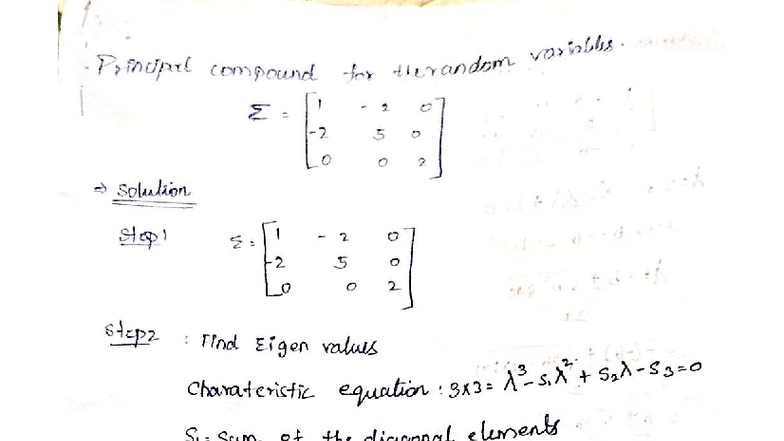 Principal compound for the random variables.
Σ = [ 1 -2 0
-2 5 0
0 0 2 ]
⇒ Solution
Step1 Σ = [ 1 -2 0
-2 5 0
0 0 2 ]
Step2 : Find Eigen values
Charateristic equation : 3x3 = λ³ - S₁λ² + S₂λ - S₃ = 0
S₁ = Sum of the diagonal elements